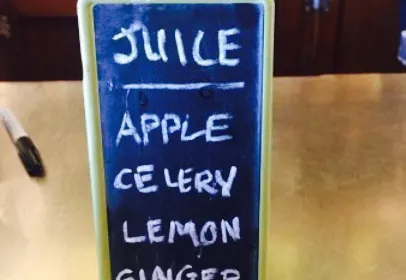 JUICE
APPLE
CELERY
LEMON
GINGER